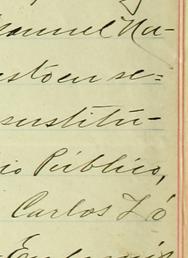 Manuel Na-
sto en se=
sustitu-
io Público,
Carlos Ló